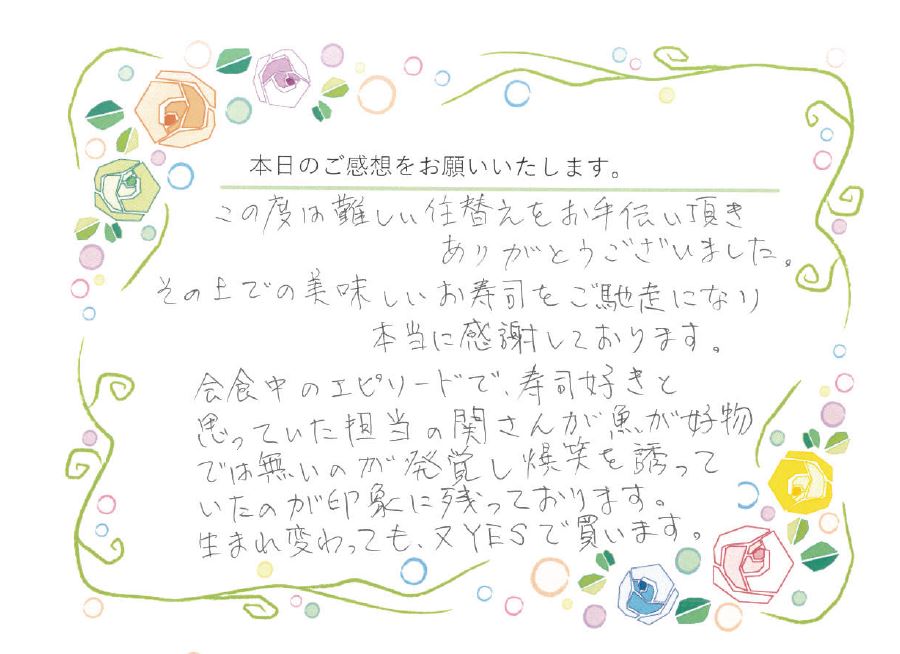 本日のご感想をお願いいたします。
この度は難しい住替えをお手伝い頂き
ありがとうございました。
その上での美味しいお寿司をご馳走になり
本当に感謝しております。
会食中のエピソードで、寿司好きと
思っていた担当の関さんが魚が好物
では無いのが発覚し爆笑を誘って
いたのが印象に残っております。
生まれ変わっても、又YESで買います。